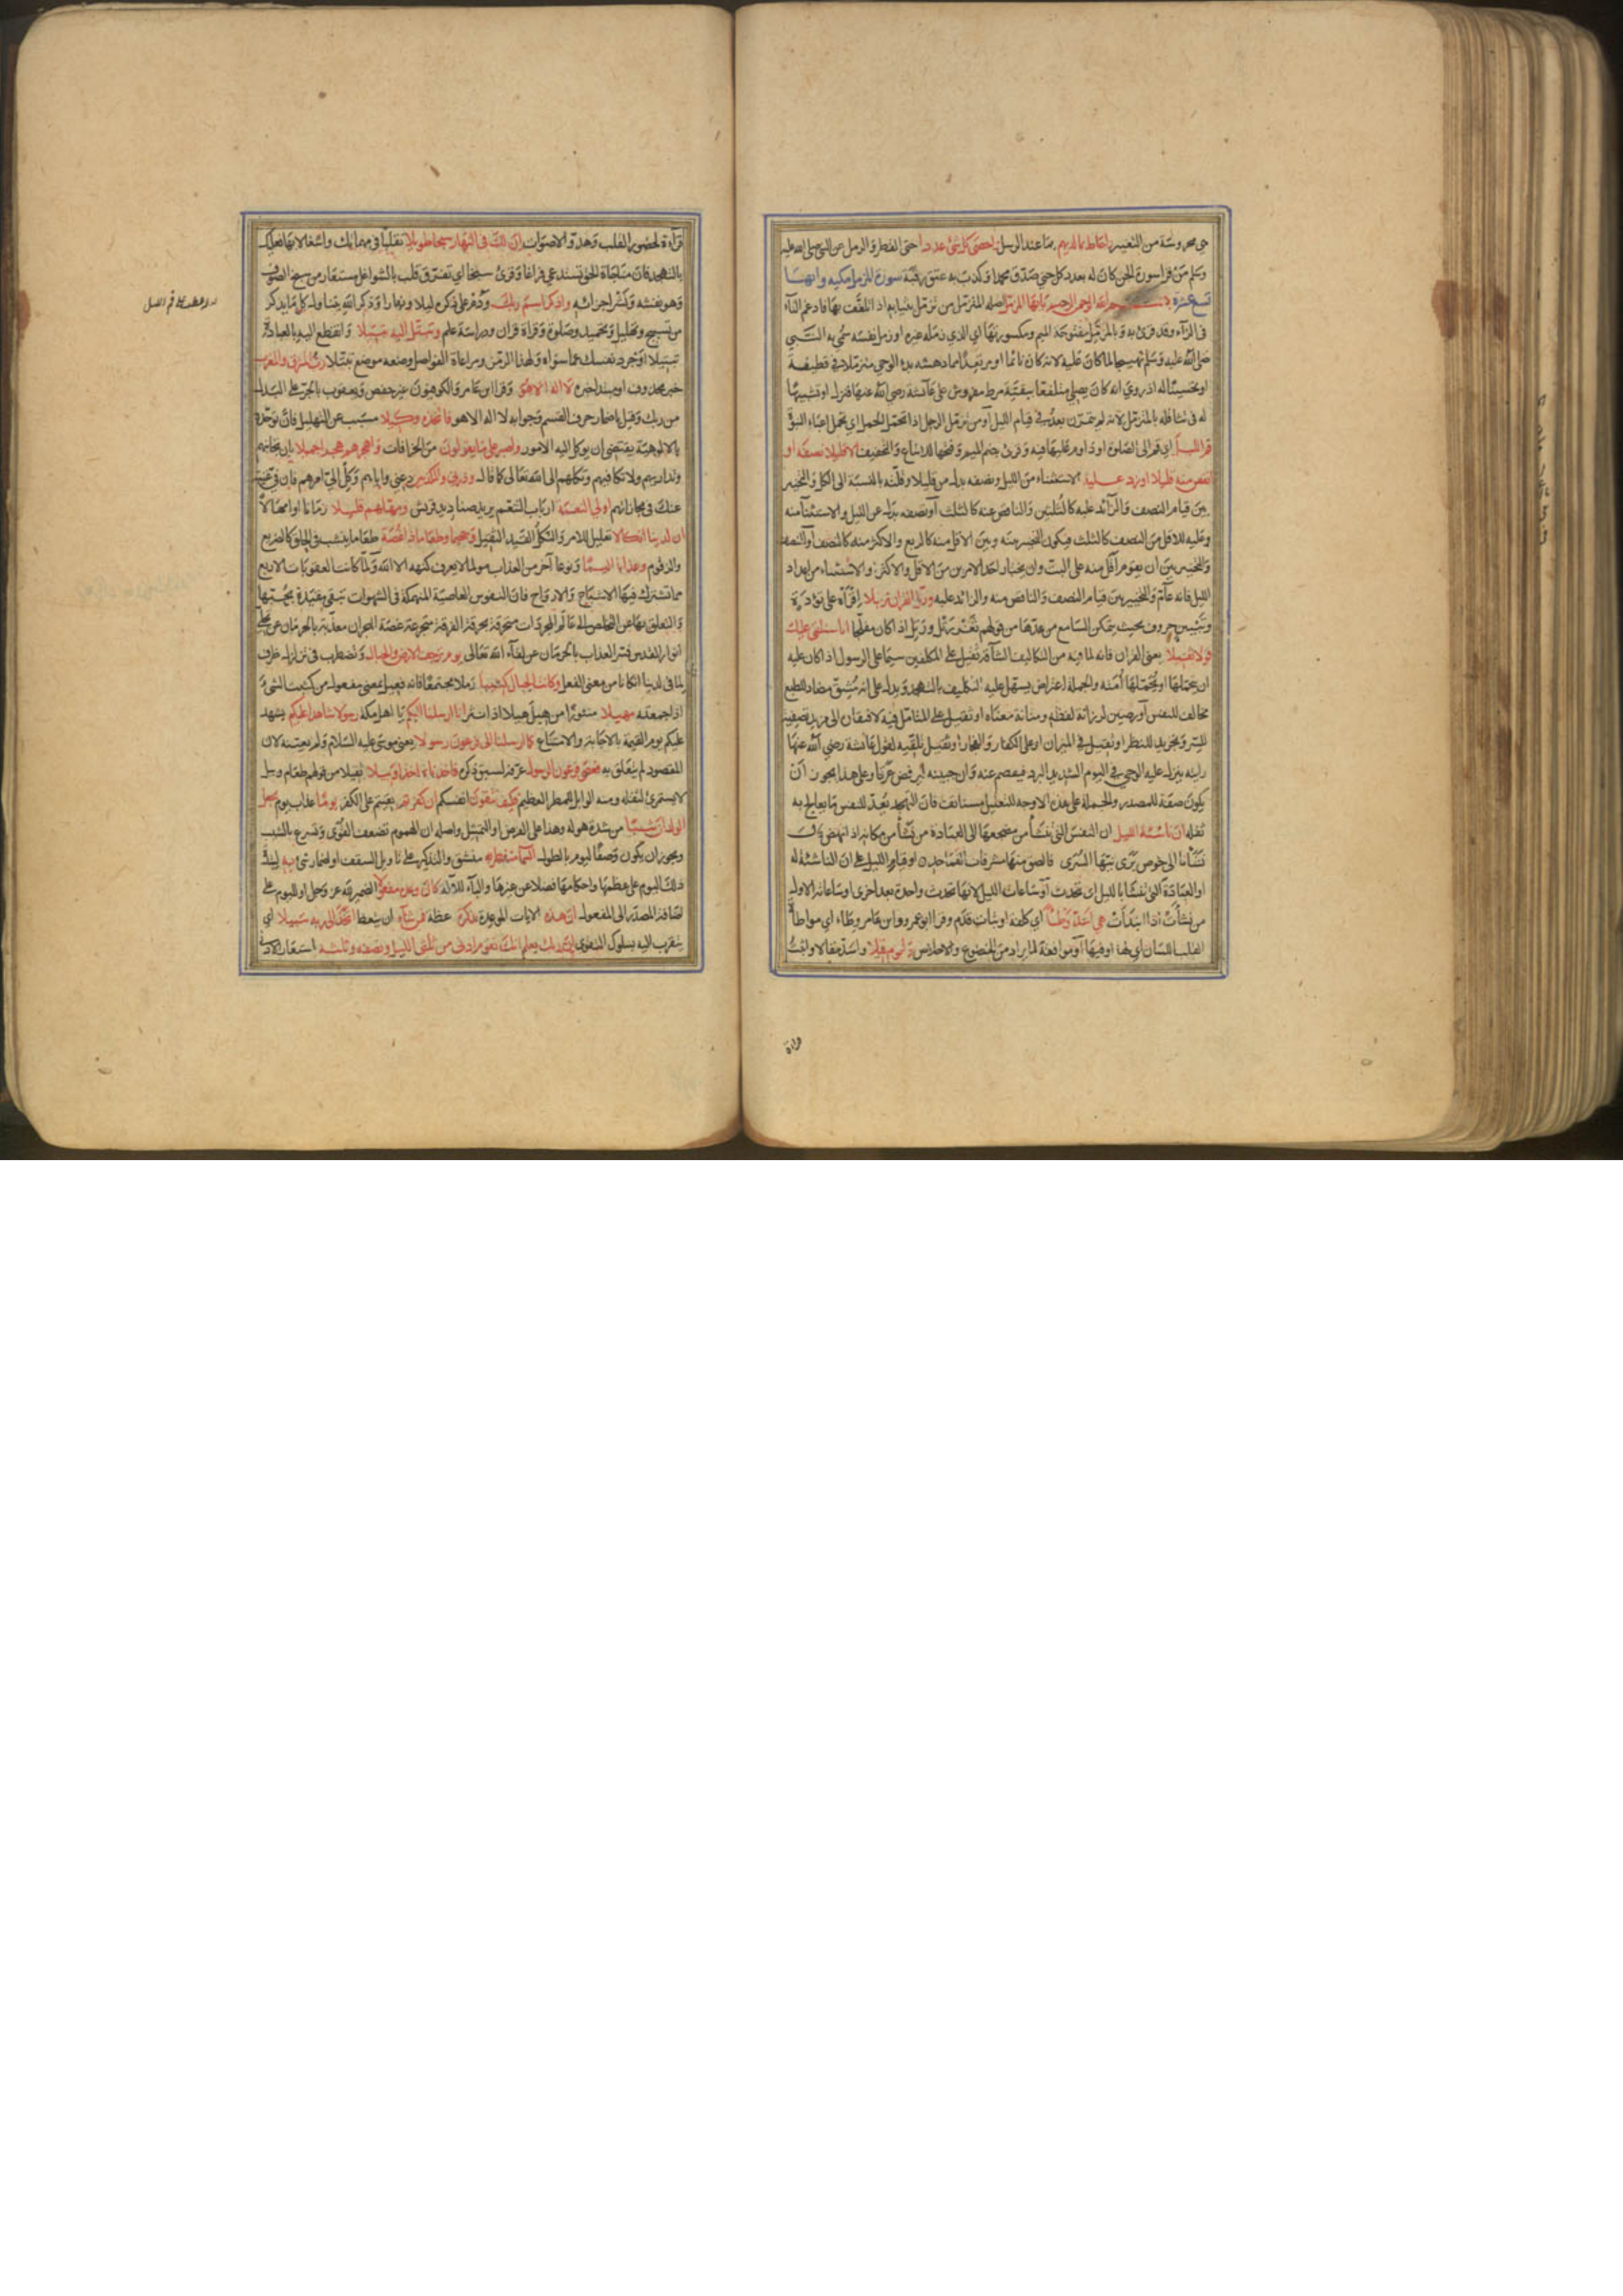 هي محروسة من التغيير واحاط بما لديهم بما عند الرسل واحصى كل شئ عددا حتى القطر والرمل عن النبي صلى الله عليه
وسلم من قرأ سورة الجن كان له بعدد كل جني صدق محمدا وكذب به عتق رقبة سورة المزمل مكية وايها
تسع عشرة الرحمن الرحيم يا ايها المزمل اصله المتزمل من تزمل بثيابه اذا تلفف بها فادغم التاء
في الزاء وقد قرئ به وبالمزمل مفتوحة الميم ومكسورتها اي الذي زمله غيره او زمل نفسه سمي به النبي
صلى الله عليه وسلم تهجينا لما كان عليه لانه كان نائما او مرتعدا مما دهشه بدء الوحي متزملا في قطيفة
او تحسينا له اذ روي انه كان يصلي متلففا ببقية مرط مفروش على عائشة رضي الله عنها فنزل او تشبيها
له في تثاقله بالمتزمل لانه لم يتمرن بعد في قيام الليل او من تزمل الزمل اذا تحمل الحمل اي تحمل اعباء النبوة
قم الليل اي قم الى الصلوة او داوم عليها فيه وقرئ بضم الميم وفتحها للاتباع والتخفيف الا قليلا نصفه او
انقص منه قليلا او زد عليه الاستثناء من الليل ونصفه بدل من قليلا وقلته بالنسبة الى الكل والتخيير
بين قيام النصف والزائد عليه كالثلثين والناقص عنه كالثلث او نصفه بدل من الليل والاستثناء منه
وعليه للاقل من النصف كالثلث فيكون التخيير بينه وبين الاقل منه كالربع والاكثر منه كالنصف او للنصف
والتخيير بين ان يقوم اقل منه على البت وان يختار احد الامرين من الاقل والاكثر والاستثناء من اعداد
الليل فانه عام والتخيير بين قيام النصف والناقص منه والزائد عليه ورتل القرآن ترتيلا اقرأه على تؤدة
وتبيين حروف بحيث يتمكن السامع من عدها من قولهم ثغر رتل ورتل اذا كان مفلجا انا سنلقي عليك
قولا ثقيلا يعني القرآن فانه لما فيه من التكاليف الشاقة ثقيل على المكلفين سيما على الرسول اذ كان عليه
ان يتحملها او يحملها امته والجملة اعتراض يسهل عليه التكليف بالتهجد ويدل على انه مشق مضاد للطبع
مخالف للنفس او رصين لرزانة لفظه ومتانة معناه او ثقيل على المتأمل فيه لافتقاره الى مزيد تصفية
للسر وتجريد للنظر او ثقيل في الميزان او على الكفار والفجار او ثقيل تلقيه لقول عائشة رضي الله عنها
رايته ينزل عليه الوحي في اليوم الشديد البرد فيفصم عنه وان جبينه ليرفض عرقا وعلى هذا يجوز ان
يكون صفة للمصدر والجملة على هذه الاوجه للتعليل مستانف فان التهجد يعد للنفس ما به تعالج
ثقله ان ناشئة الليل ان النفس التي تنشأ من مضجعها الى العبادة من نشأ من مكانه اذا نهض
نشأنا الى خوص برى نيها السرى والصق منها مشرفات القماحد او قيام الليل على ان الناشئة له
او العبادة التي تنشأ بالليل اي تحدث او ساعات الليل لانها تحدث واحدة بعد اخرى او ساعاتها الاول
من نشأت اذا ابتدأت هي اشد وطأ اي كلفة او ثبات قدم وقرأ ابو عمرو وابن عامر وطاء اي مواطاة
القلب اللسان لها او فيها او موافقة لما يراد من الخضوع والاخلاص واقوم قيلا واسد مقالا واثبت
قراءة
قراءة لحضور القلب وهدو الاصوات ان لك في النهار سبحا طويلا تقلبا في مهماتك واشتغالا بها فعليك
بالتهجد فان مناجاة الحق تستدعي فراغا وقرئ سبخا اي تفرق قلب بالشواغل مستعار من سبخ الصوف
وهو نفشه ونشر اجزائه واذكر اسم ربك ودم على ذكره ليلا ونهارا وذكر الله يتناول كل ما يذكر
من تسبيح وتهليل وتحميد وصلوة وقراة قرآن ودراسة علم وتبتل اليه تبتيلا وانقطع اليه بالعبادة
وجرد نفسك عما سواه ولهذا الرمز ومراعاة الفواصل وضعه موضع تبتلا رب المشرق والمغرب
خبر محذوف او مبتدأ خبره لا اله الا هو وقرأ ابن عامر والكوفيون غير حفص ويعقوب بالجر على البدل
من ربك وقيل باضمار حرف القسم وجوابه لا اله الا هو فاتخذه وكيلا مسبب عن التهليل فان توحده
بالالوهية يقتضي ان يوكل اليه الامور واصبر على ما يقولون من الخرافات واهجرهم هجرا جميلا بان تجانبهم
وتداريهم ولا تكافيهم وتكلهم الى الله تعالى كما قال وذرني والمكذبين دعني واياهم وكل الي امرهم فان في غنية
عنك في مجازاتهم اولي النعمة ارباب التنعم يريد صناديد قريش ومهلهم قليلا زمانا او امهالا
ان لدينا انكالا تعليل للامر والنكل القيد الثقيل وجحيما وطعاما ذا غصة طعاما ينشب في الحلق كالضريع
والزقوم وعذابا اليما ونوعا آخر من العذاب مولما لا يعرف كنهه الا الله ولما كانت العقوبات الاربع
مما تشترك فيها الاشباح والارواح فان النفوس العاصية المنهمكة في الشهوات تبقى مقيدة بحبها
والتعلق بها عن التخلص الى عالم المجردات متحرقة بحرقة الفرقة متجرعة غصة الهجران معذبة بالحرمان عن تجلي
انوار القدس فسر العذاب بالحرمان عن لقاء الله تعالى يوم ترجف الارض والجبال وتضطرب في تزلزل ظرف
لما في لدينا انكالا من معنى الفعل وكانت الجبال كثيبا رملا مجتمعا فانه فعيل بمعنى مفعول من كثبت الشئ
اذا جمعته مهيلا منثورا من هيل هيلا اذا نثر انا ارسلنا اليكم يا اهل مكة رسولا شاهدا عليكم يشهد
عليكم يوم القيمة بالاجابة والامتناع كما ارسلنا الى فرعون رسولا يعني موسى عليه السلام ولم يعينه لان
المقصود لم يتعلق به فعصى فرعون الرسول عرفه لسبق ذكره فاخذناه اخذا وبيلا ثقيلا من قولهم طعام وبيل
لا يستمرئ لثقله ومنه الوابل للمطر العظيم فكيف تتقون انفسكم ان كفرتم بقيتم على الكفر يوما عذاب يوم يجعل
الولدان شيبا من شدة هوله وهذا على الفرض او التمثيل واصله ان الهموم تضعف القوى وتسرع بالشيب
ويجوز ان يكون وصفا لليوم بالطول السماء منفطر به منشق والتذكير على تاويل السقف او اضمار شئ به لشدة
ذلك اليوم على عظمها واحكامها فضلا عن غيرها والباء للآلة كان وعده مفعولا الضمير لله عز وجل او لليوم على
اضافة المصدر الى المفعول ان هذه الايات الموعدة تذكرة عظة فمن شاء ان يتعظ اتخذ الى ربه سبيلا اي
يتقرب اليه بسلوك التقوى ان ربك يعلم انك تقوم ادنى من ثلثي الليل ونصفه وثلثه استعار الادنى
قم الليل